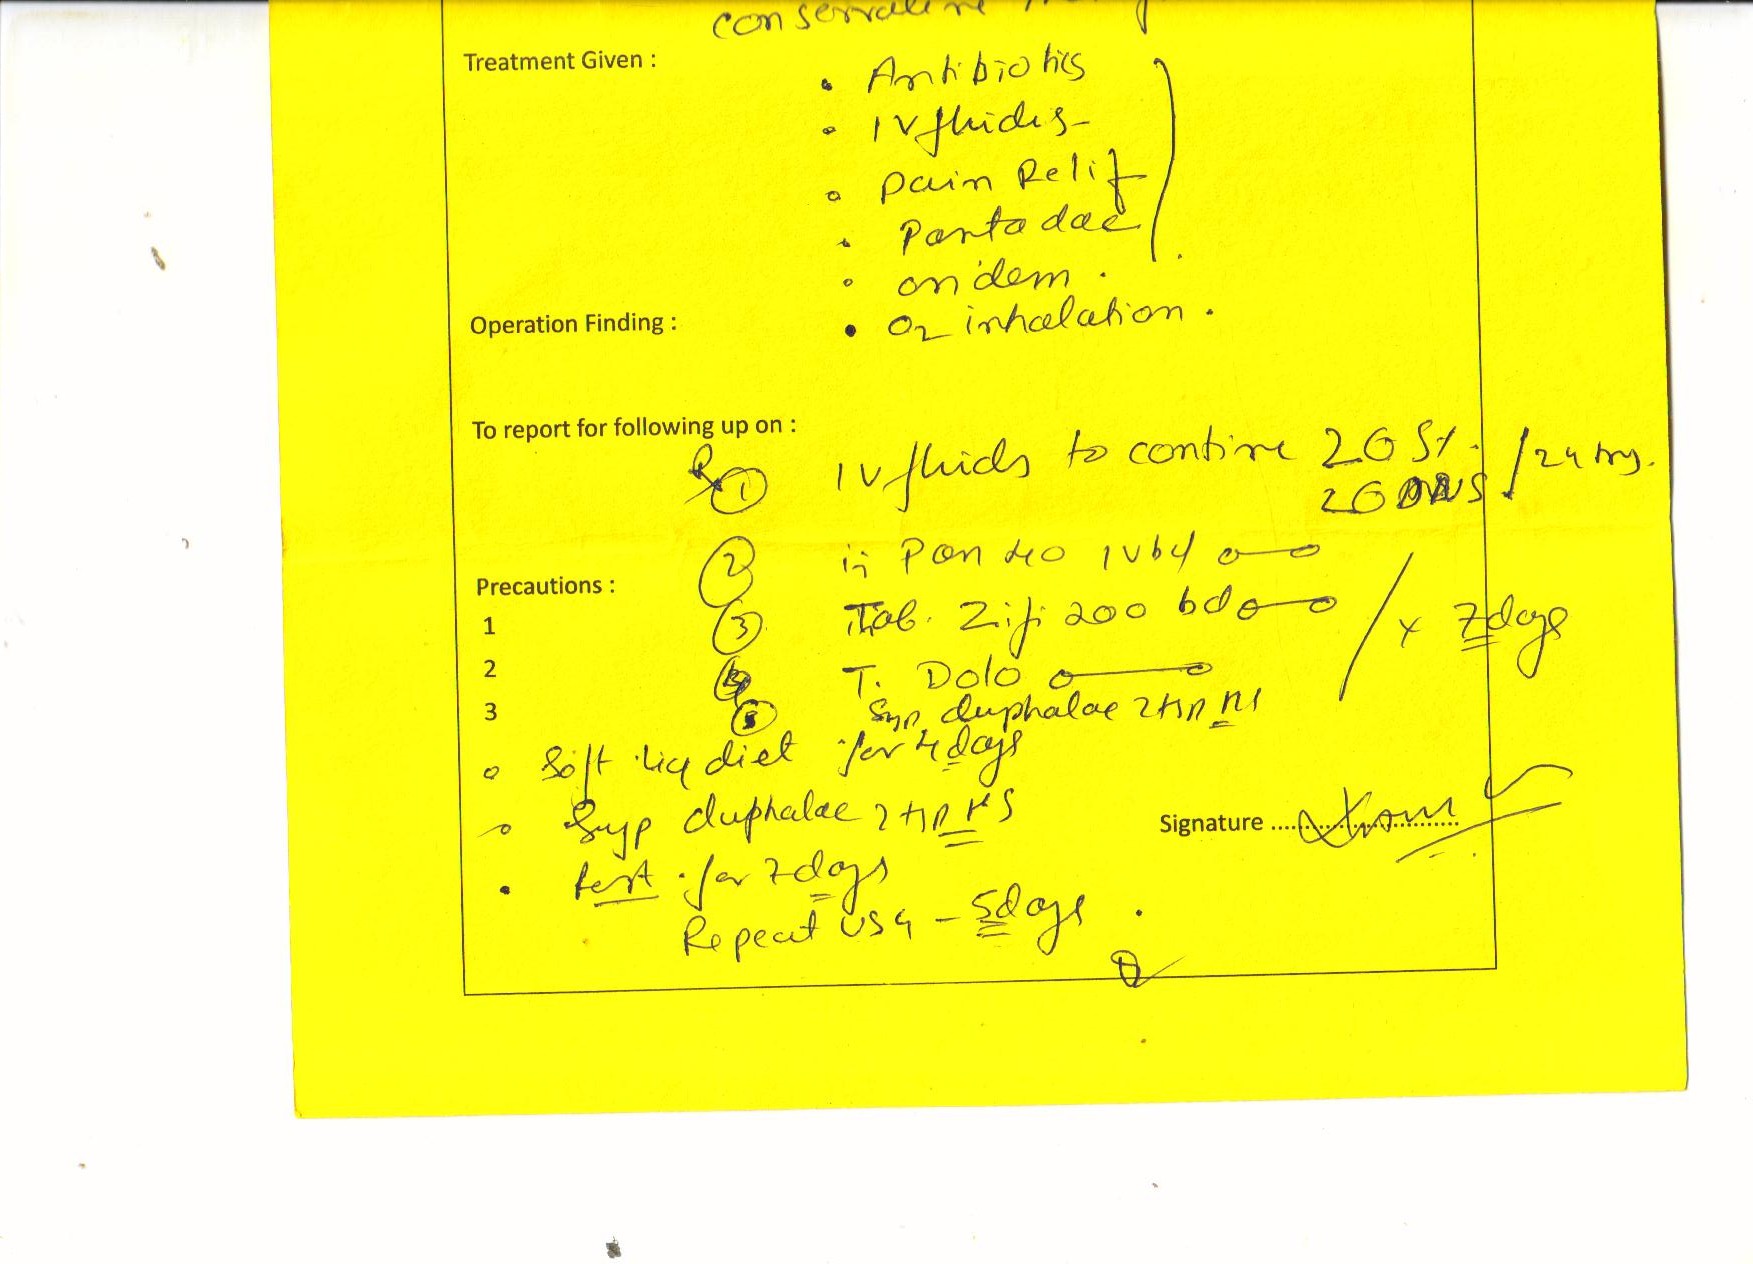 conservative
Treatment Given :
• Antibiotics
• IV fluids
• Pain Relif
• Pantodac
• on dem .
Operation Finding :
• O2 inhalation .
To report for following up on :
① IV fluids to contine 2G 5% . / 24 hrs.
2G DNS
② Pan 40 IV bd
Precautions :
1
③ Tab. Zifi 200 bd x 7 days
2
④ T. Dolo
3
⑤ Syp duphalac 2 tsp HS
• Soft liq diet for 4 days
• Syp duphalac 2 tsp HS
• rest for 7 days
Signature ....................
Repeat USG – 5 days .